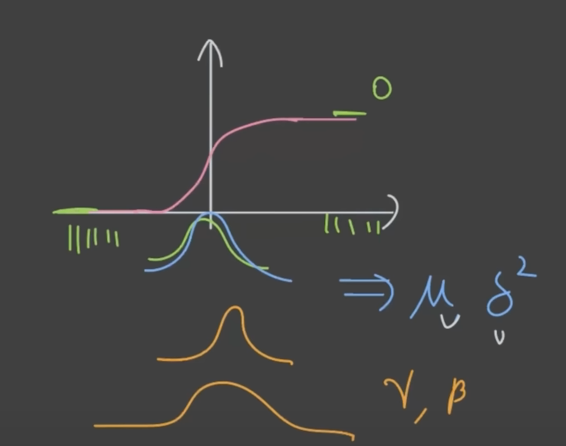 0
⇒ μ δ²
γ, β